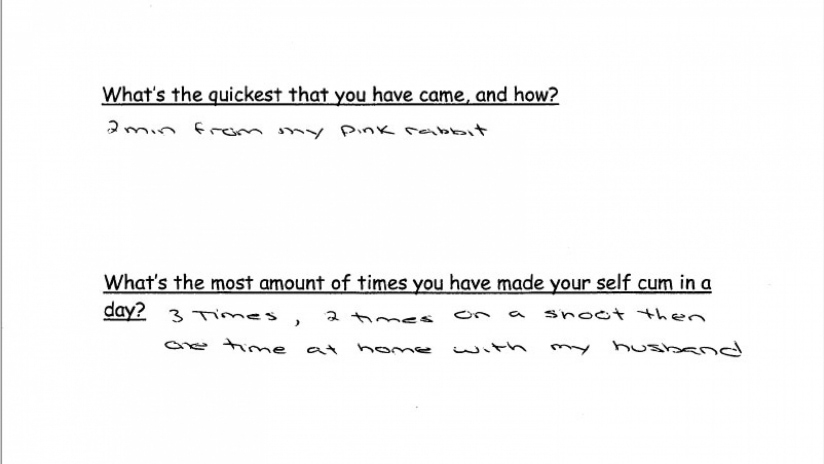 What's the quickest that you have came, and how?
2 min from my pink rabbit
What's the most amount of times you have made your self cum in a
day? 3 Times, 2 times on a shoot then
one time at home with my husband